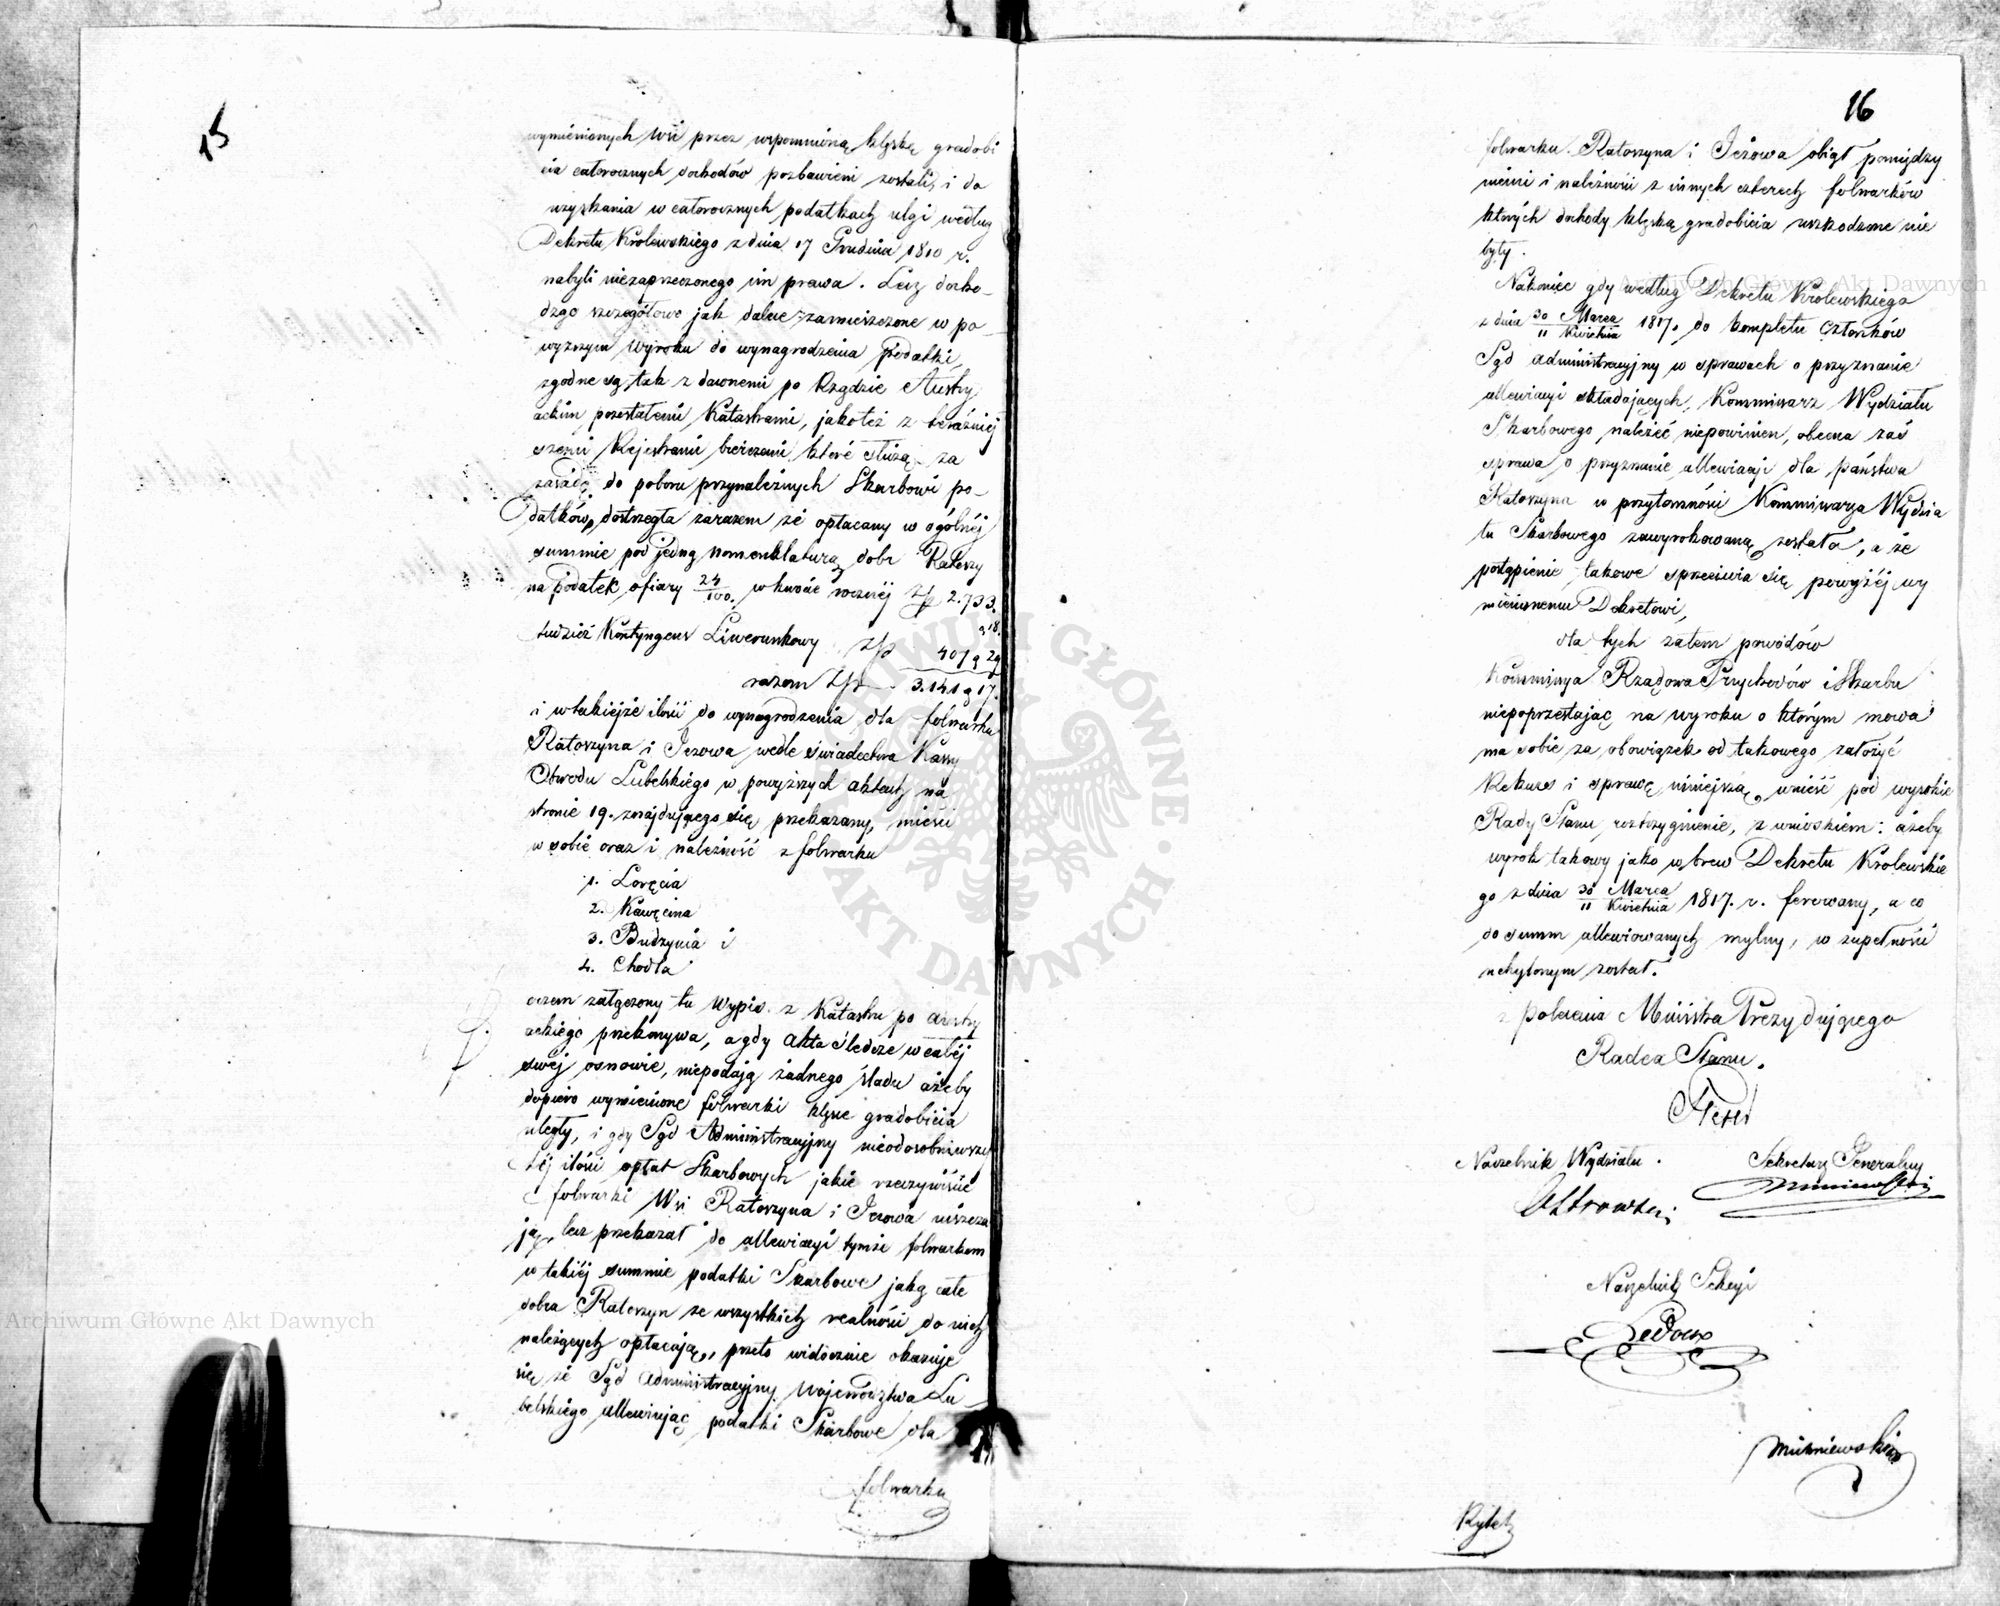 15
wymienionych Wsi przez wspomnioną klęskę gradobi
cia całorocznych dochodów pozbawieni zostali, i do
uzyskania w całorocznych podatkach ulgi według
Dekretu Królewskiego z dnia 17 Grudnia 1810 r.
nabyli niezaprzeczonego im prawa. Lecz docho-
dząc szczegółowo jak dalece zamieszczone w po-
wyższym Wyroku do wynagrodzenia podatki
zgodne są tak z dawnemi po Rządzie Austry
ackim pozostałemi Katastrami, jakoteż z teraźniej
szemi Rejestrami bierczemi które służą za
zasadę do poboru przynależnych Skarbowi po-
datków, dostrzegła zarazem że opłacany w ogólnéj
summie pod jedną nomenklaturą dobr Ratoszy
na podatek ofiary 24/100. w kwocie roczniéj Złp 2.733.
g 18.
tudzież Kontyngens Liwerunkowy Złp 407 g 29
razem Złp 3.141 g 17.
i w takiejże ilości do wynagrodzenia dla folwarku
Ratoszyna i Jeżowa wedle świadectwa Kassy
Obwodu Lubelskiego w powyższych aktach na
stronie 19. znajdującego się przekazany, mieści
w sobie oraz i należność z folwarku
1. Loręcia
2. Kawęcina
3. Budzynia i
4. Chodla
czem załączony tu Wypis z Katastru po austry
ackiego przekonywa, a gdy Akta Śledcze w całéj
swéj osnowie, niepodają żadnego śladu ażeby
dopiero wymienione folwarki klęsce gradobicia
uległy, i gdy Sąd Administracyjny nieodosobniwszy
téj ilości opłat Skarbowych jakie rzeczywiście
folwarki Wsi Ratoszyna i Jeżowa uiszcza
ją, lecz przekazał do allewiacyi tymże folwarkom
w takiéj summie podatki Skarbowe jaką całe
dobra Ratoszyn ze wszystkich realności do nich
należących opłacają, przeto widocznie okazuje
się że Sąd administracyjny Województwa Lu
belskiego allewiując podatki Skarbowe dla
folwarku
16
folwarku Ratoszyna i Jeżowa objął pomiędzy
niemi i należności z innych czterech folwarków
których dochody klęską gradobicia uszkodzone nie
były.
Nakoniec gdy według Dekretu Królewskiego
z dnia 30 Marca / 11 Kwietnia 1817. do kompletu Członków
Sąd administracyjny w sprawach o przyznanie
allewiacyi składających, Kommissarz Wydziału
Skarbowego należeć niepowinien, obecna zaś
sprawa o przyznanie allewiacyi dla państwa
Ratoszyna w przytomności Kommissarza Wydzia
łu Skarbowego zawyrokowaną została, a że
postąpienie takowe sprzeciwia się powyżéj wy
mienionemu Dekretowi,
dla tych zatem powodów
Kommissya Rządowa Przychodów i Skarbu
niepoprzestając na wyroku o którym mowa
ma sobie za obowiązek od takowego założyć
Rekurs i sprawę niniejszą wnieść pod wysokie
Rady Stanu rozstrzygnienie, z wnioskiem: ażeby
wyrok takowy jako wbrew Dekretu Królewskie
go z dnia 30 Marca / 11 Kwietnia 1817. r. ferowany, a co
do summ allewiowanych mylny, w zupełności
uchylonym został.
z polecenia Ministra Prezydującego
Radca Stanu.
Naczelnik Wydziału.
Sekretarz Generalny
Ostrowski
Naczelnik Sekcyi
Ledoux